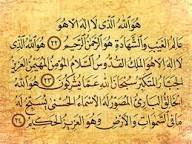 هُوَ اللَّهُ الَّذِي لَا إِلَهَ إِلَّا هُوَ
عَالِمُ الْغَيْبِ وَالشَّهَادَةِ هُوَ الرَّحْمَنُ الرَّحِيمُ ﴿٢٢﴾ هُوَ اللَّهُ
الَّذِي لَا إِلَهَ إِلَّا هُوَ الْمَلِكُ الْقُدُّوسُ السَّلَامُ الْمُؤْمِنُ الْمُهَيْمِنُ الْعَزِيزُ
الْجَبَّارُ الْمُتَكَبِّرُ سُبْحَانَ اللَّهِ عَمَّا يُشْرِكُونَ ﴿٢٣﴾ هُوَ اللَّهُ
الْخَالِقُ الْبَارِئُ الْمُصَوِّرُ لَهُ الْأَسْمَاءُ الْحُسْنَى يُسَبِّحُ لَهُ
مَا فِي السَّمَوَاتِ وَالْأَرْضِ وَهُوَ الْعَزِيزُ الْحَكِيمُ ﴿٢٤﴾